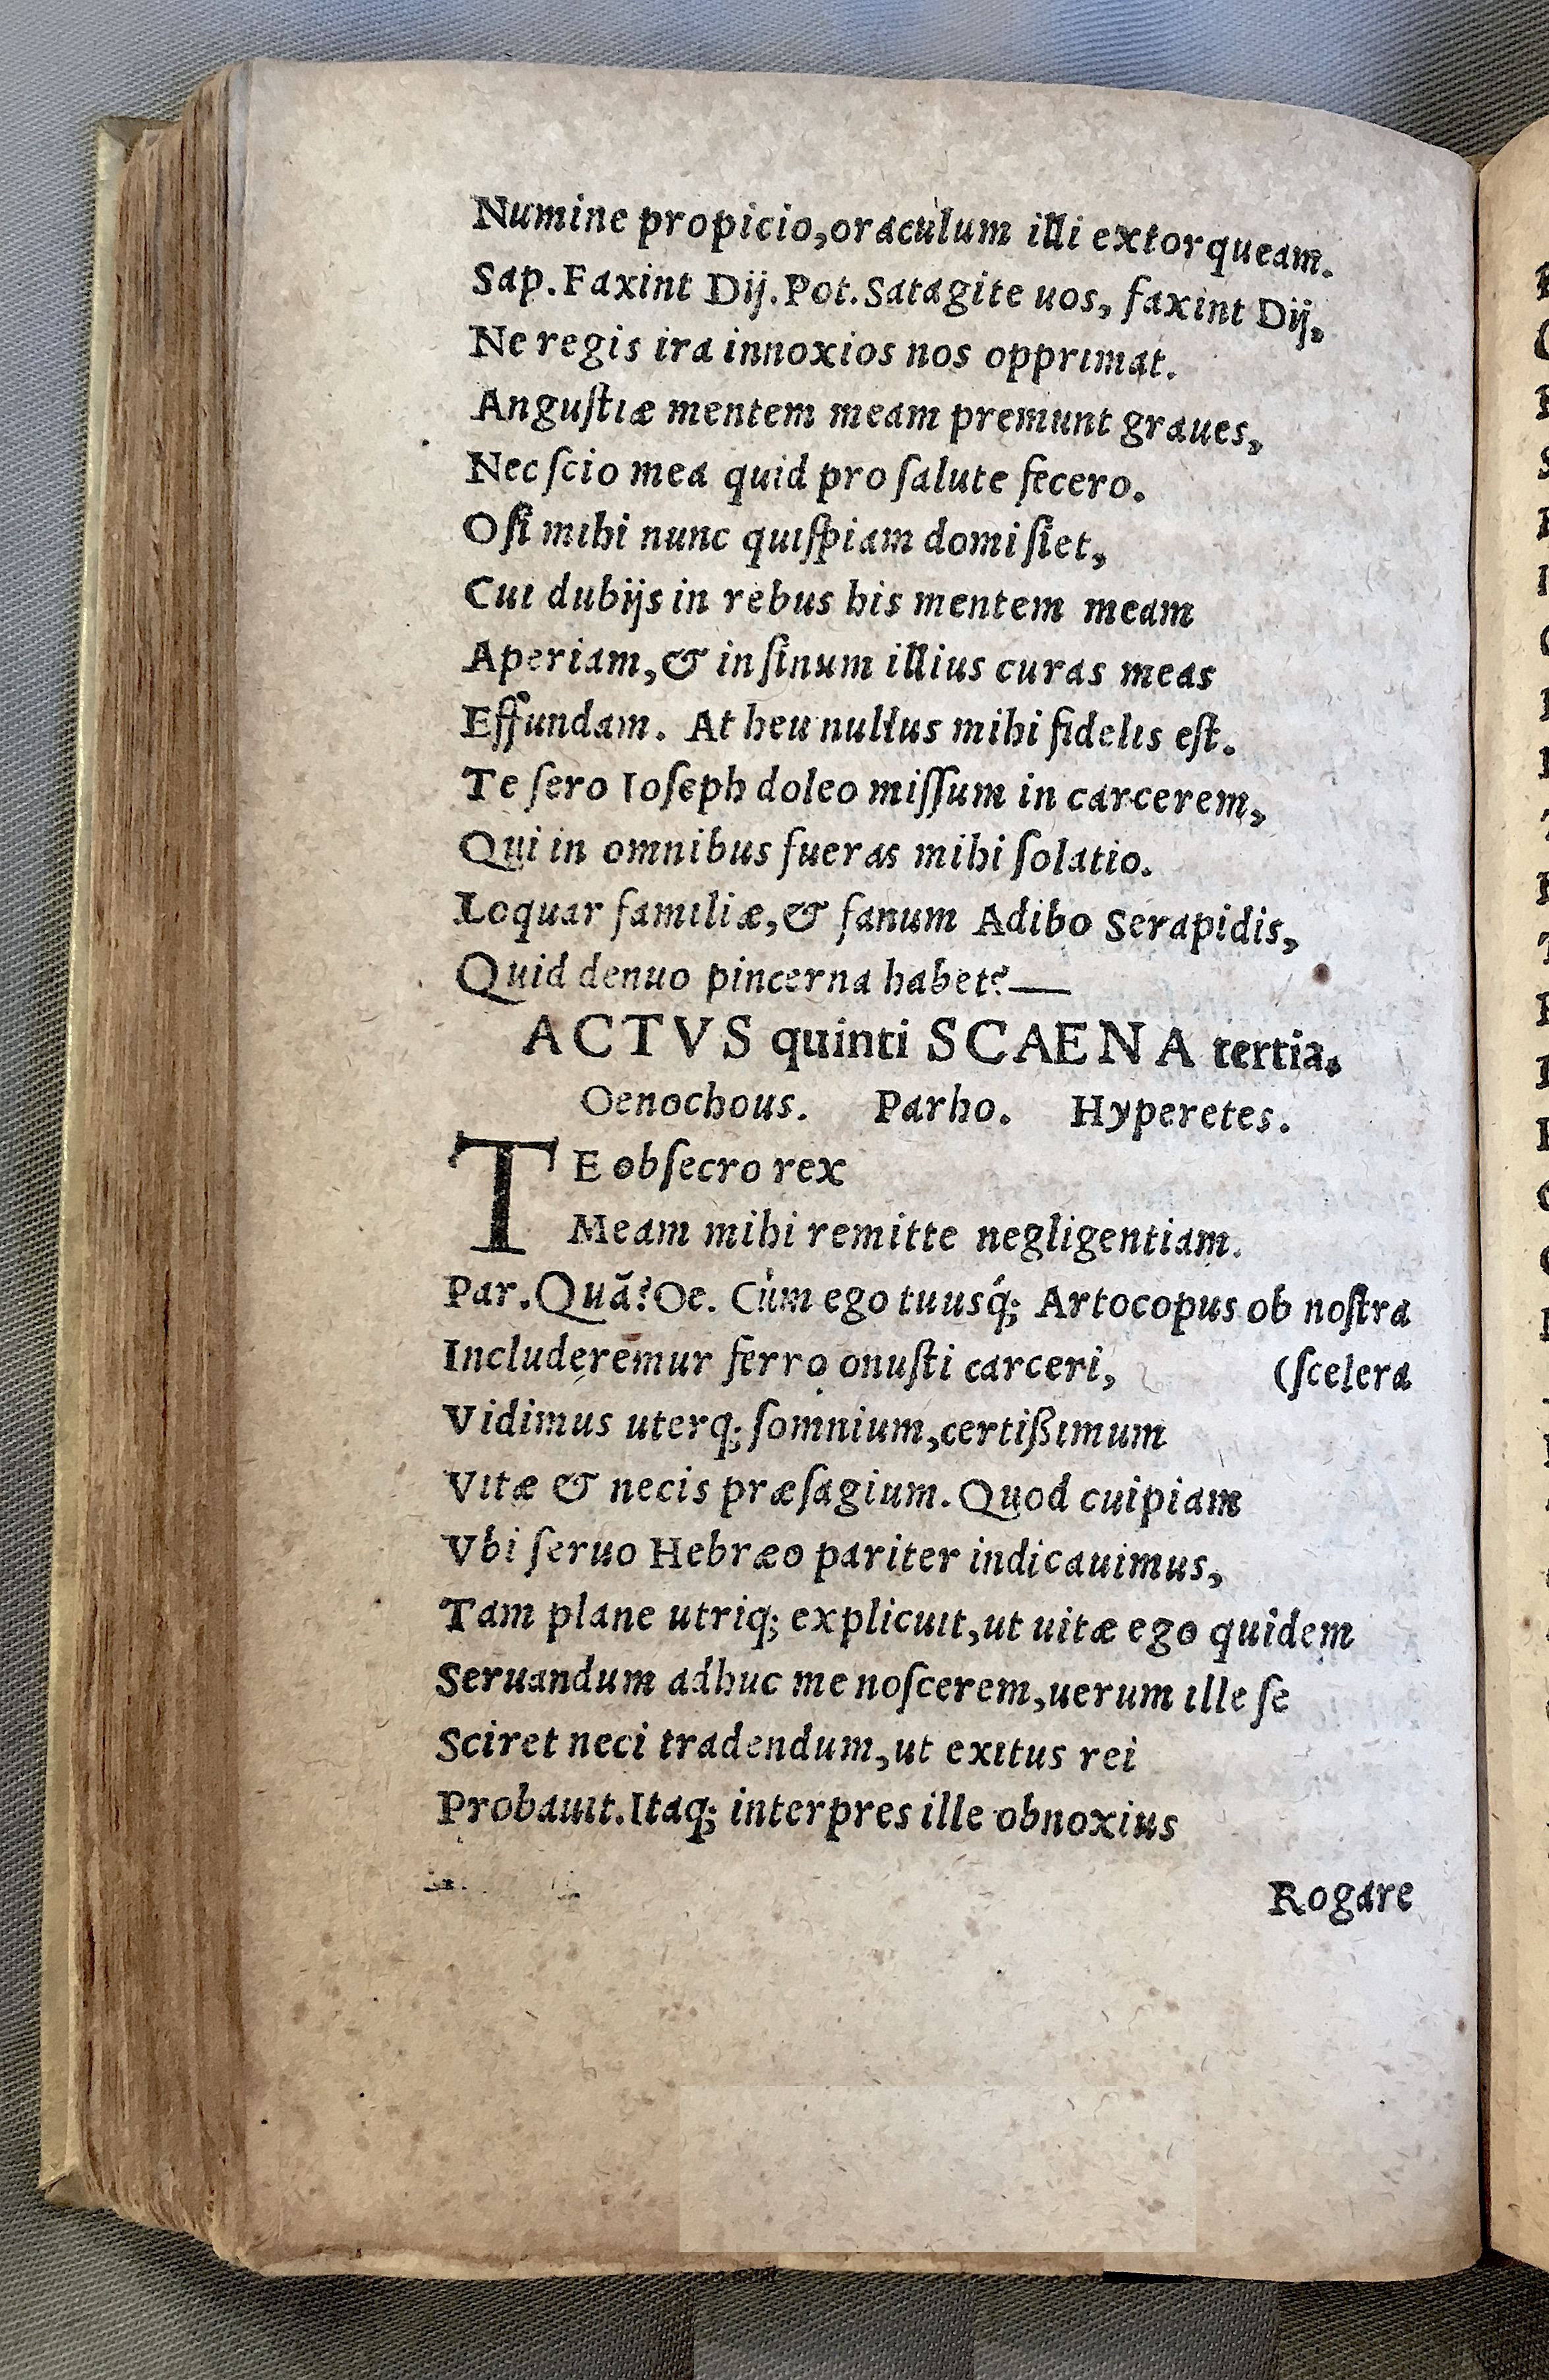 Numine propicio, oraculum illi extorqueam.
Sap. Faxint Dij. Pot. Satagite uos, faxint Dij,
Ne regis ira innoxios nos opprimat.
Anguſtiæ mentem meam premunt graues,
Nec ſcio mea quid pro ſalute fecero.
O ſi mihi nunc quiſpiam domi ſiet,
Cui dubijs in rebus his mentem meam
Aperiam, & in ſinum illius curas meas
Effundam. At heu nullus mihi fidelis eſt.
Te ſero Ioſeph doleo miſſum in carcerem,
Qui in omnibus fueras mihi ſolatio.
Loquar familiæ, & fanum Adibo Serapidis,
Quid denuo pincerna habet?—
ACTVS quinti SCAENA tertia.
Oenochous. Parho. Hyperetes.
TE obſecro rex
Meam mihi remitte negligentiam.
Par. Quã? Oe. Cùm ego tuusq́; Artocopus ob noſtra
Includeremur ferro onuſti carceri, (ſcelera
Vidimus uterq; ſomnium, certißimum
Vitæ & necis præſagium. Quod cuipiam
Vbi ſeruo Hebræo pariter indicauimus,
Tam plane utriq; explicuit, ut uitæ ego quidem
Seruandum adhuc me noſcerem, uerum ille ſe
Sciret neci tradendum, ut exitus rei
Probauit. Itaq; interpres ille obnoxius
Rogare